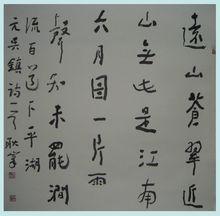 遠山蒼翠近
山無此是江南
六月圖一片雨
聲知未罷澗
流百道下平湖
元吳鎮詩一首